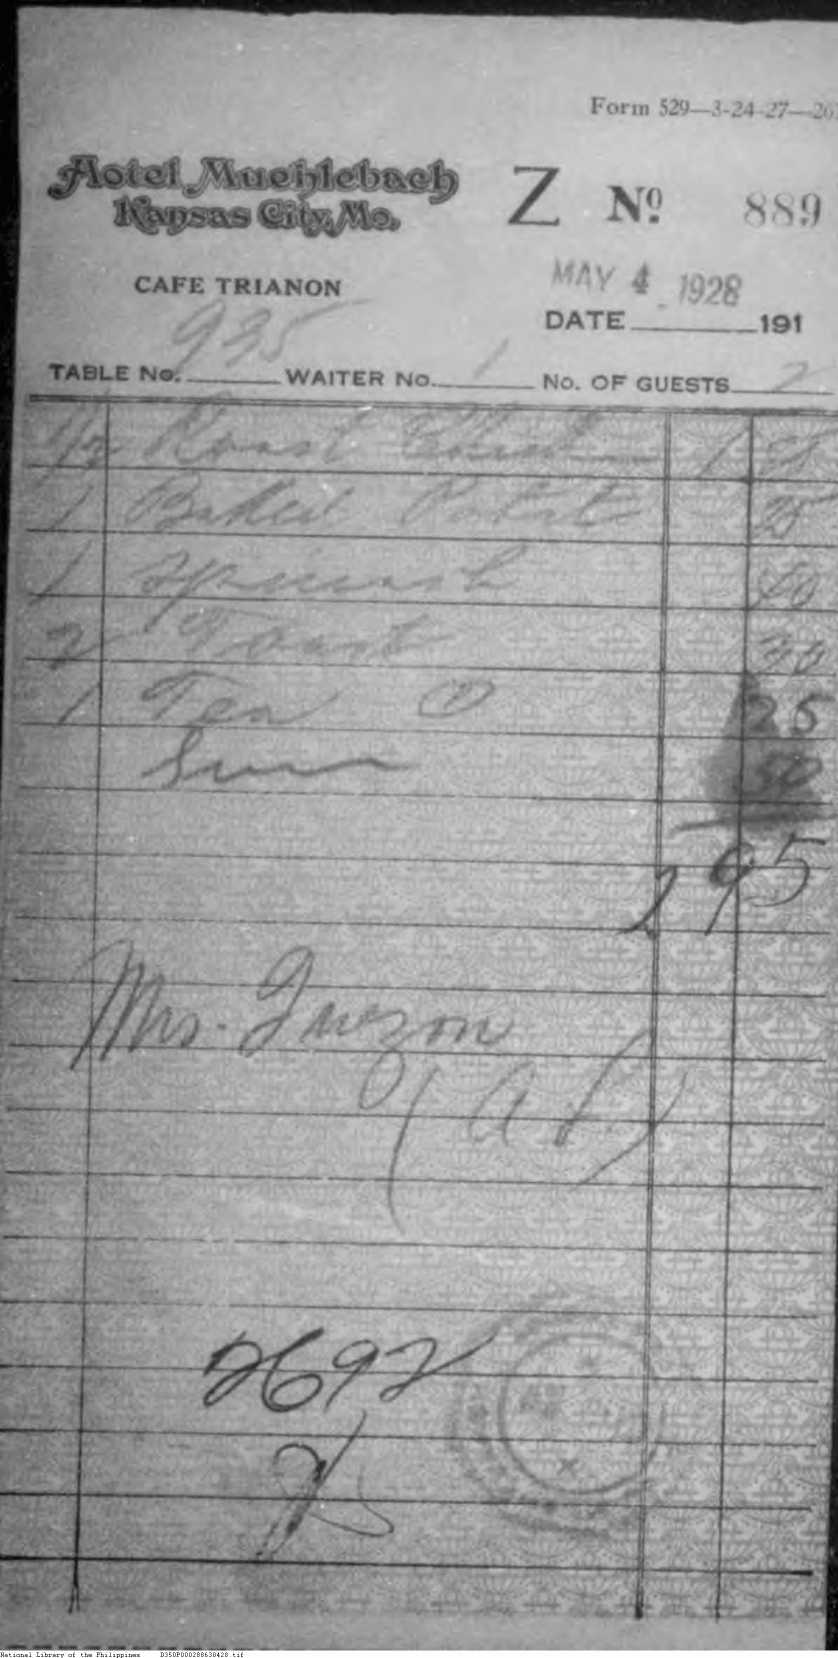 Form 529—3-24-27—
Hotel Muehlebach
Kansas City, Mo.
Z No. 889
CAFE TRIANON
MAY 4 1928
DATE 191
995
TABLE No. WAITER No. 1 No. OF GUESTS 2
1/2 Roast 1
1 Baked Potat 25
1 Spinach 40
2 Toast 30
1 Tea 25
50
2 95
Mrs. Quezon
2692
National Library of the Philippines D350P000288638428.tif